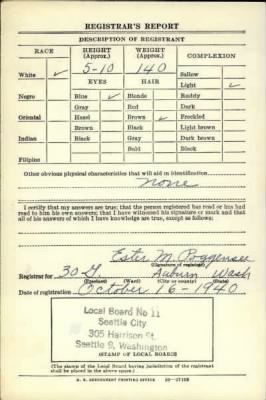 REGISTRAR'S REPORT
DESCRIPTION OF REGISTRANT
RACE HEIGHT (Approx.) WEIGHT (Approx.) COMPLEXION
5-10 140
White ✓ EYES HAIR Sallow
Light ✓
Negro Blue ✓ Blonde Ruddy
Gray Red Dark
Oriental Hazel Brown ✓ Freckled
Brown Black Light brown
Indian Black Gray Dark brown
Bald Black
Filipino
Other obvious physical characteristics that will aid in identification
None
I certify that my answers are true; that the person registered has read or has had
read to him his own answers; that I have witnessed his signature or mark and that
all of his answers of which I have knowledge are true, except as follows:
Ester M. Poggensee
(Signature of registrar)
Registrar for 30 Auburn Wash
(Precinct) (Ward) (City or county) (State)
Date of registration October 16-1940
Local Board No 11
Seattle City
305 Harrison St.
Seattle 9, Washington
(STAMP OF LOCAL BOARD)
(The stamp of the Local Board having jurisdiction of the registrant
shall be placed in the above space.)
U. S. GOVERNMENT PRINTING OFFICE 16-17105